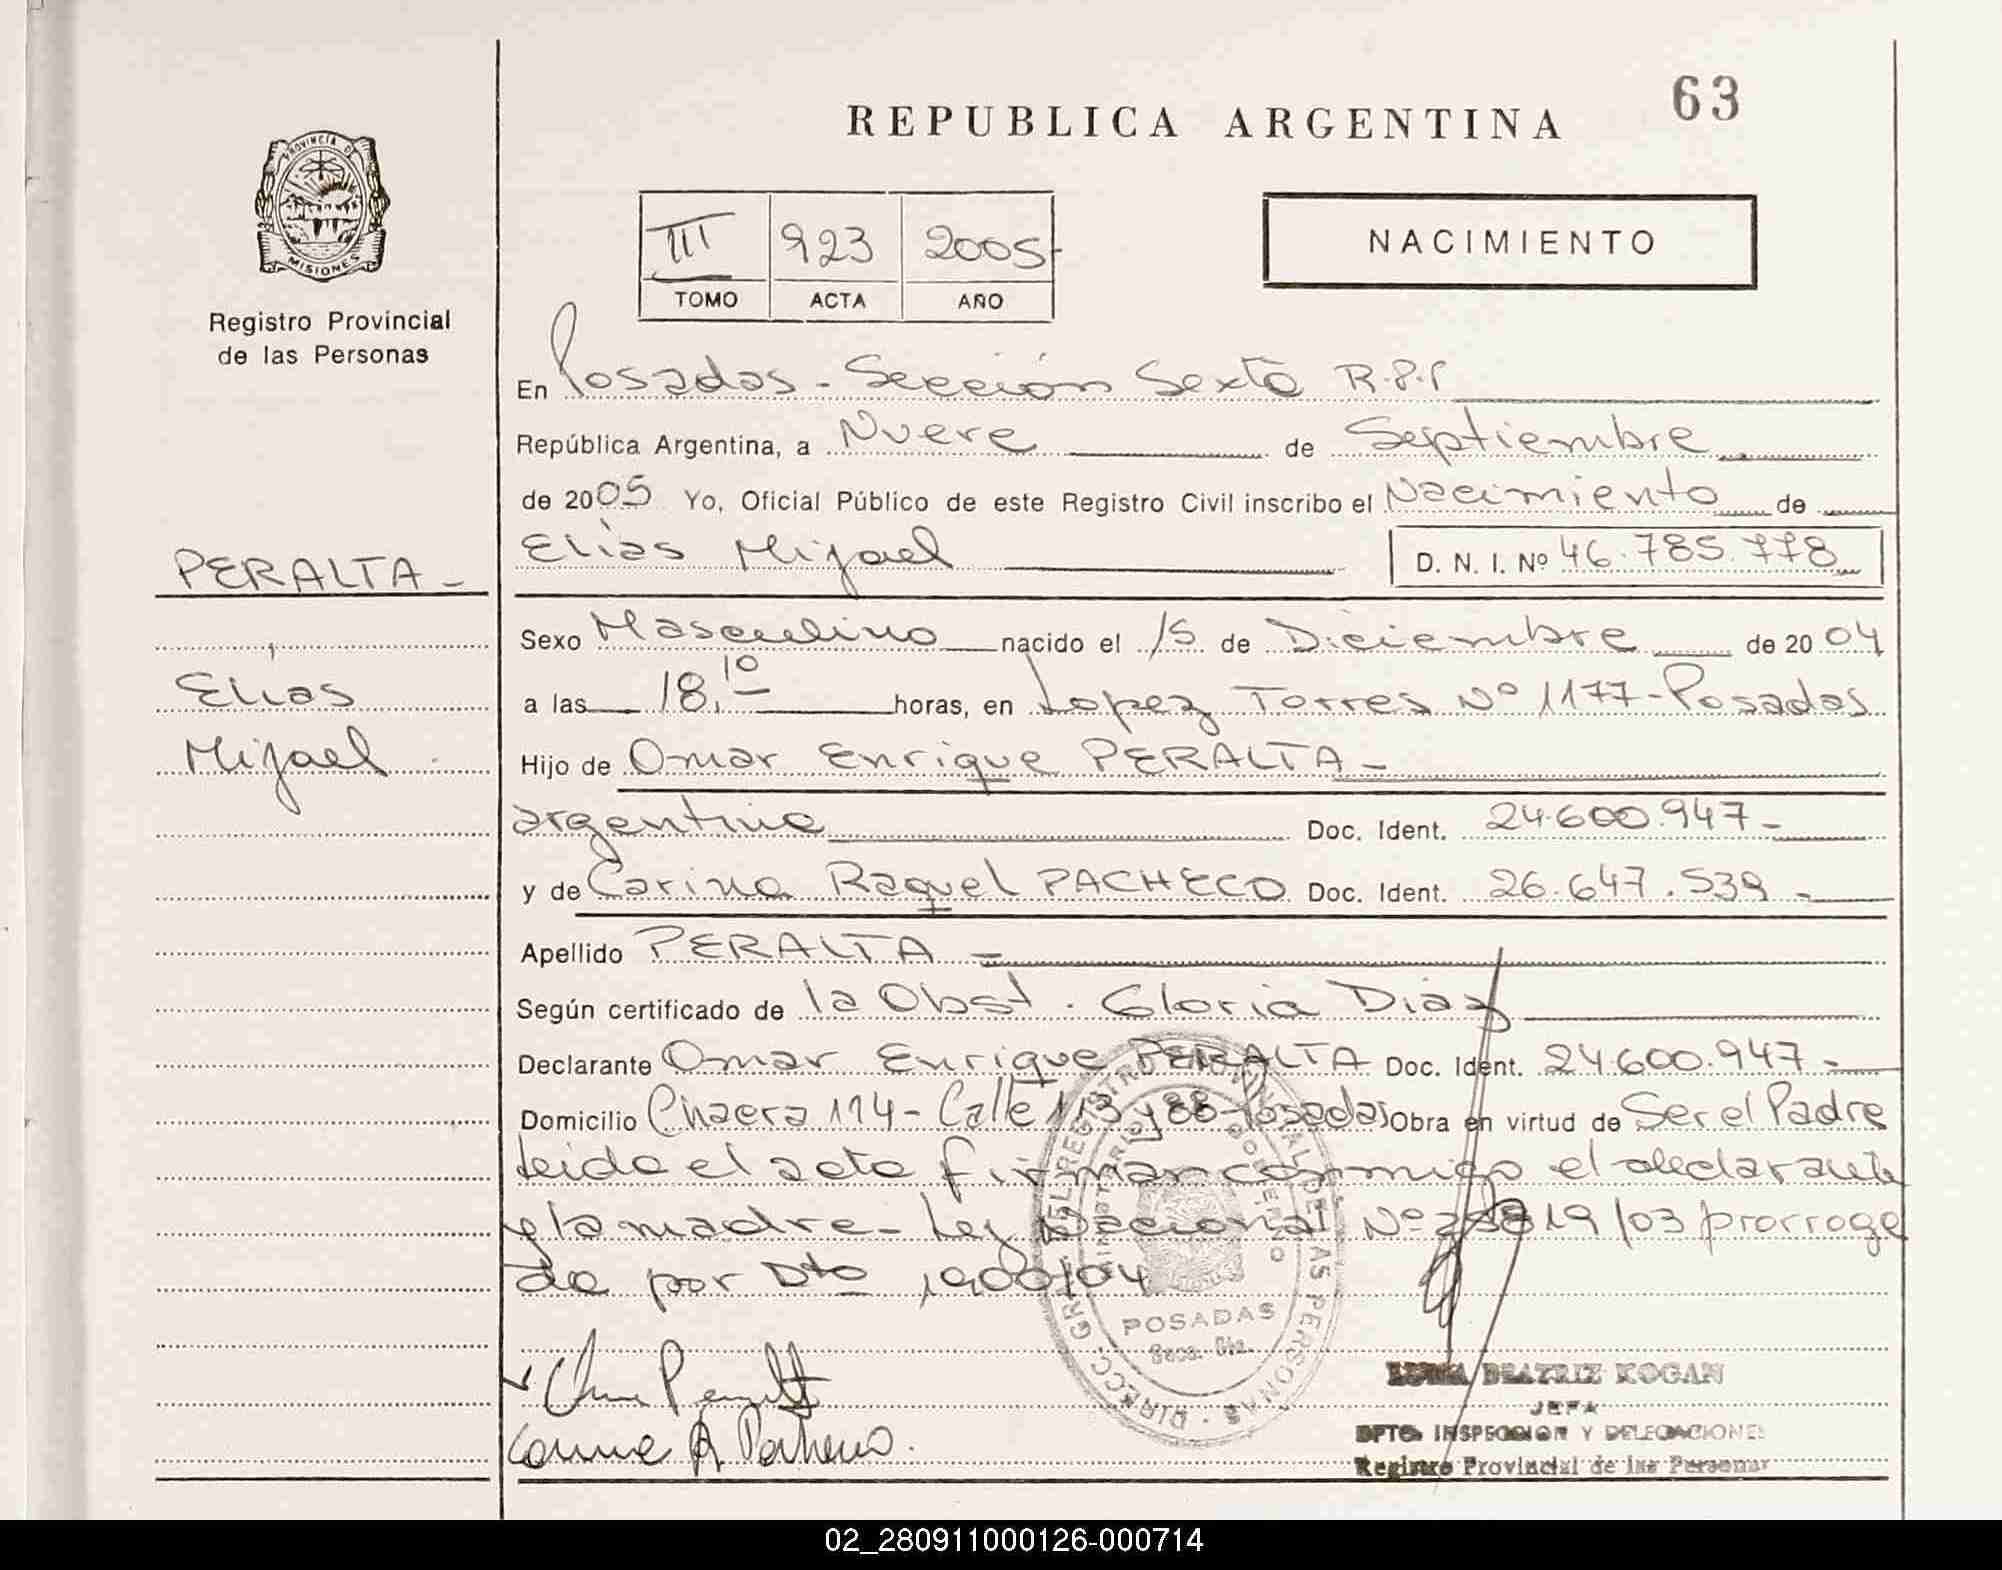 63
REPUBLICA ARGENTINA
PROVINCIA DE
MISIONES
Registro Provincial
de las Personas
III 923 2005
TOMO ACTA AÑO
NACIMIENTO
En Posadas - Sección Sexta R.P.P
República Argentina, a Nueve de Septiembre
de 2005 Yo, Oficial Público de este Registro Civil inscribo el Nacimiento de
Elías Mijael D. N. I. Nº 46.785.778
PERALTA -
Elías
Mijael
Sexo Masculino nacido el 15 de Diciembre de 2004
a las 18,10 horas, en Lopez Torres Nº 1177 - Posadas
Hijo de Omar Enrique PERALTA -
argentino Doc. Ident. 24.600.947 -
y de Carina Raquel PACHECO Doc. Ident. 26.647.539 -
Apellido PERALTA -
Según certificado de la Obst. Gloria Diaz
Declarante Omar Enrique PERALTA Doc. Ident. 24.600.947 -
Domicilio Chacra 114 - Calle 113 y 88 - Posadas Obra en virtud de Ser el Padre
Leida el acta firman conmigo el declarante
y la madre - Ley Nacional Nº 25819/03 prorroga
da por Dto 1900/04
DIRECC. GRAL. DEL REGISTRO PROVINCIAL DE LAS PERSONAS
MINISTERIO DE GOBIERNO
POSADAS
Carina R Pacheco.
BEATRIZ KOGAN
JEFA
DPTO. INSPECCION Y DELEGACIONES
Registro Provincial de las Personas
02_280911000126-000714